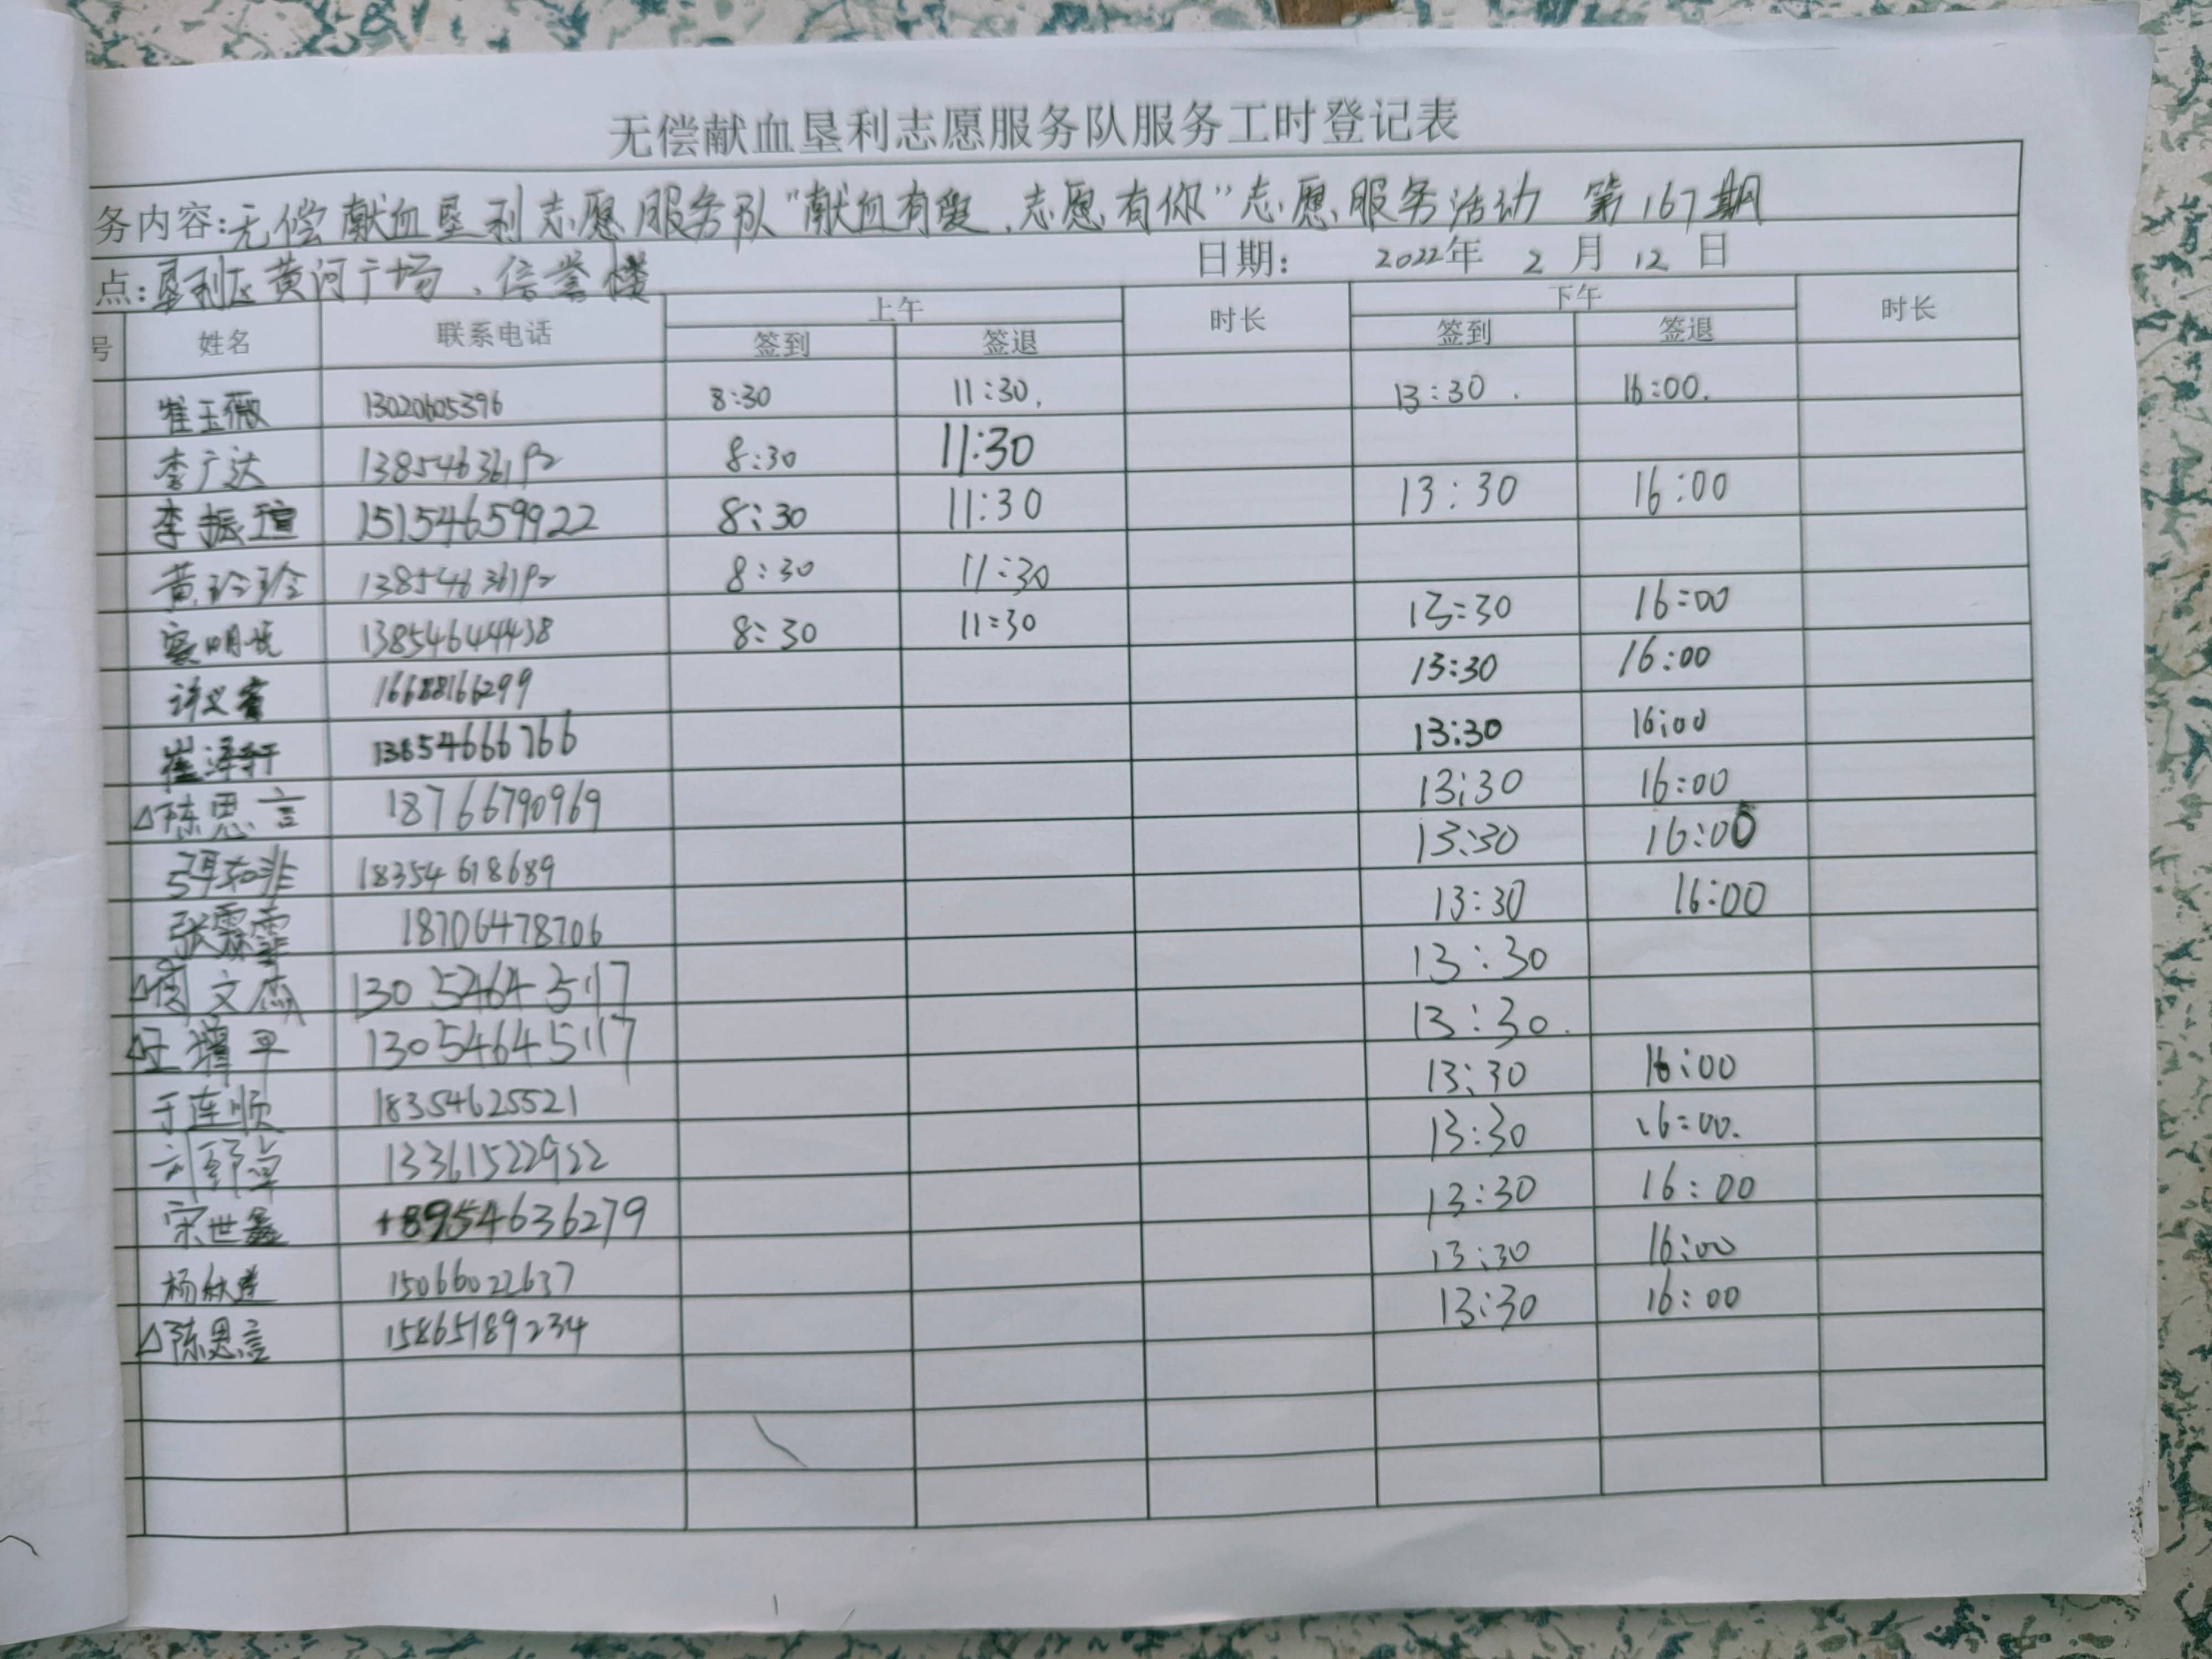 无偿献血垦利志愿服务队服务工时登记表
务内容:无偿献血垦利志愿服务队"献血有爱、志愿有你"志愿服务活动 第167期
点:垦利区黄河广场、信誉楼 日期: 2022年 2 月 12 日
号 姓名 联系电话 上午 时长 下午 时长
签到 签退 签到 签退
崔玉薇 13020605396 8:30 11:30. 13:30. 16:00.
李广达 13854636192 8:30 11:30
李振瑄 15154659922 8:30 11:30 13:30 16:00
黄珍珍 13854636192 8:30 11:30
明 13854644438 8:30 11:30 13:30 16:00
许义睿 16688166299 13:30 16:00
崔泽轩 13654666766 13:30 16:00
△陈思言 18766790969 13:30 16:00
18354618689 13:30 16:00
张 18706478706 13:30 16:00
△周文杰 13054645117 13:30
△王增平 13054645117 13:30.
于连顺 18354625521 13:30 16:00
刘 13361522922 13:30 16:00.
宋世鑫 18954636279 13:30 16:00
杨 15066022637 13:30 16:00
△陈思言 15865189234 13:30 16:00